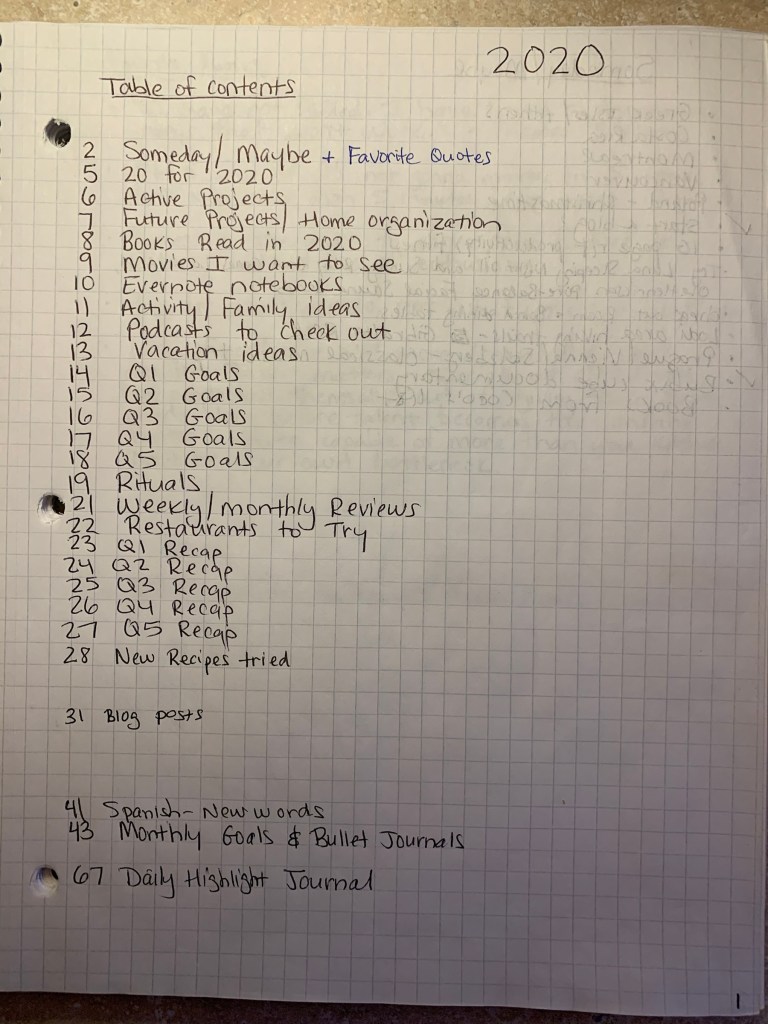 2020
Table of contents
2 Someday/Maybe + Favorite Quotes
5 20 for 2020
6 Active Projects
7 Future Projects/Home organization
8 Books Read in 2020
9 Movies I want to see
10 Evernote notebooks
11 Activity/Family ideas
12 Podcasts to check out
13 Vacation ideas
14 Q1 Goals
15 Q2 Goals
16 Q3 Goals
17 Q4 Goals
18 Q5 Goals
19 Rituals
21 Weekly/monthly Reviews
22 Restaurants to Try
23 Q1 Recap
24 Q2 Recap
25 Q3 Recap
26 Q4 Recap
27 Q5 Recap
28 New Recipes tried
31 Blog posts
41 Spanish-New words
43 Monthly Goals & Bullet Journals
67 Daily Highlight Journal
1